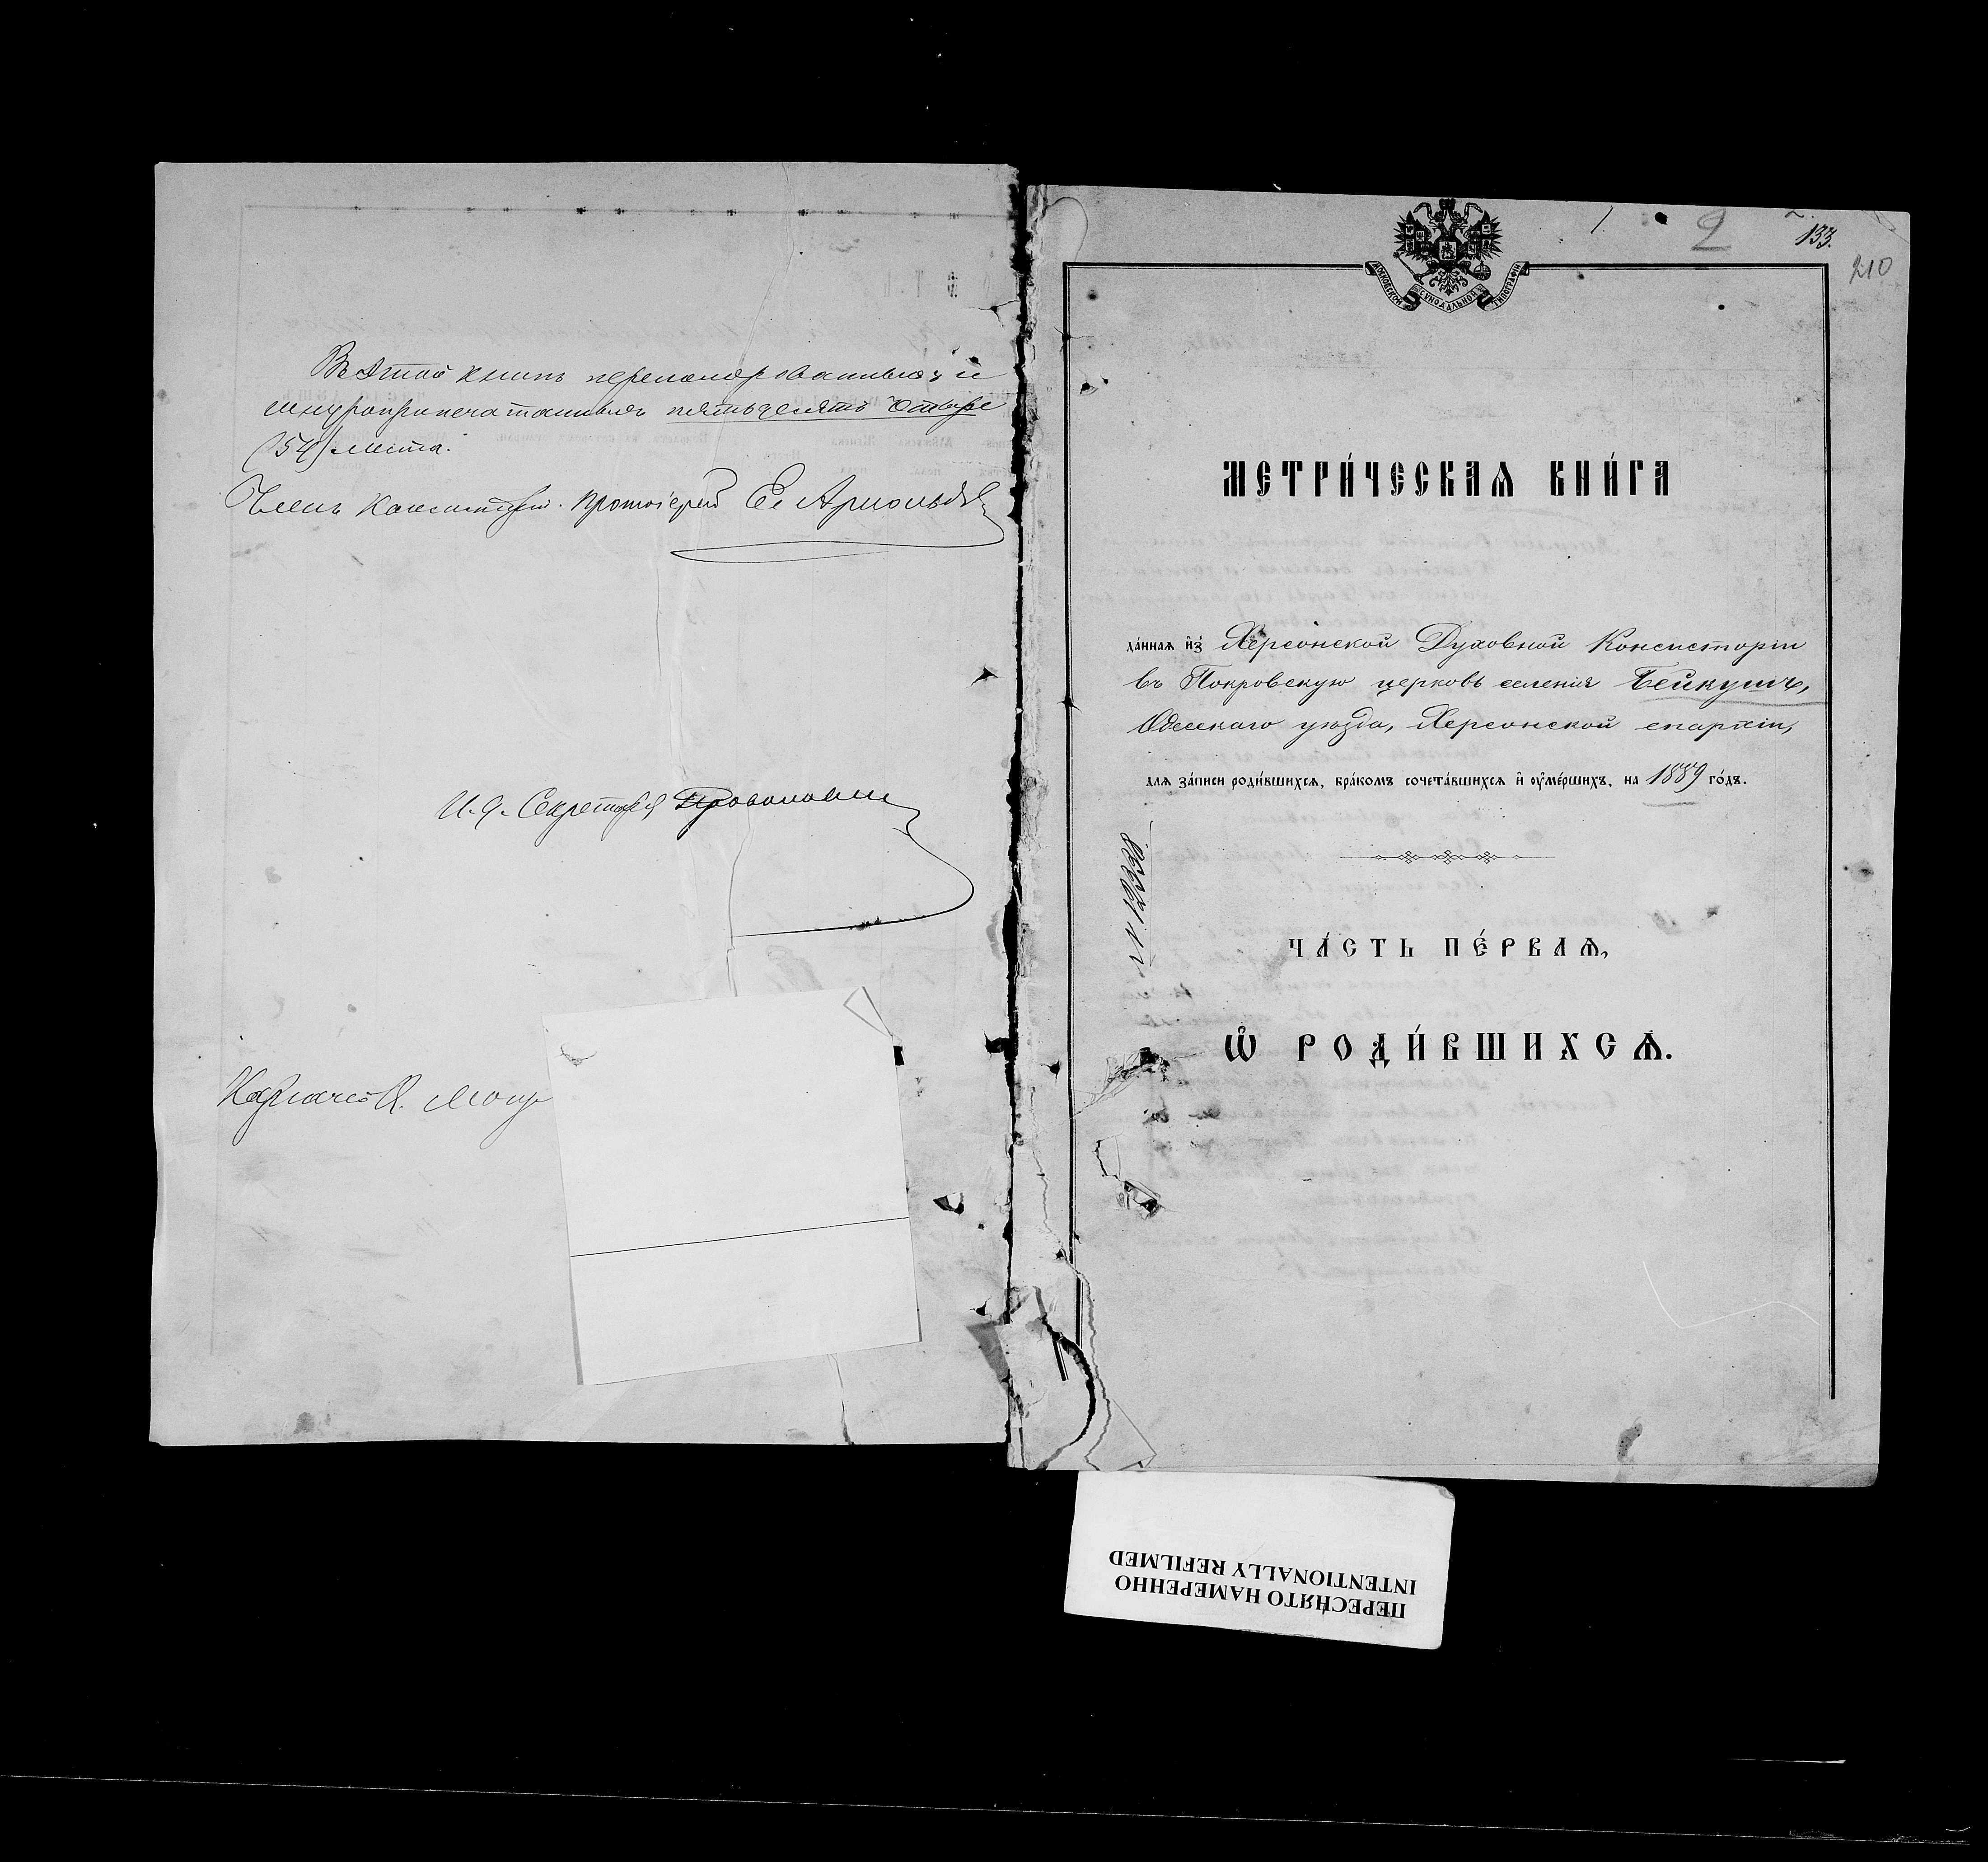 Въ этой книгѣ перенумерованныхъ и
шнуроприпечатанныхъ пятьдесятъ четыре
(54) листа.
Членъ Консисторіи Протоіерей
И. д. Секретаря
1. 2 133.
210
МОСКОВСКОЙ СѴНОДАЛЬНОЙ ТИПОГРАФІИ
МЕТРИ́ЧЕСКАѦ КНИ́ГА
да́ннаѧ и҆з̾ Херсонской Духовной Консисторіи
въ Покровскую церковь селенія Бейкушъ,
Одесскаго уѣзда, Херсонской епархіи,
длѧ за́писи роди́вшихсѧ, бра́комъ сочета́вшихсѧ и҆ ᲂу҆ме́ршихъ, на 1889 го́дъ.
№ 12338
ЧА́СТЬ ПЕ́РВАѦ,
Ѡ҆ РОДИ́ВШИХСѦ.
ПЕРЕСНЯТО НАМЕРЕННО
INTENTIONALLY REFILMED